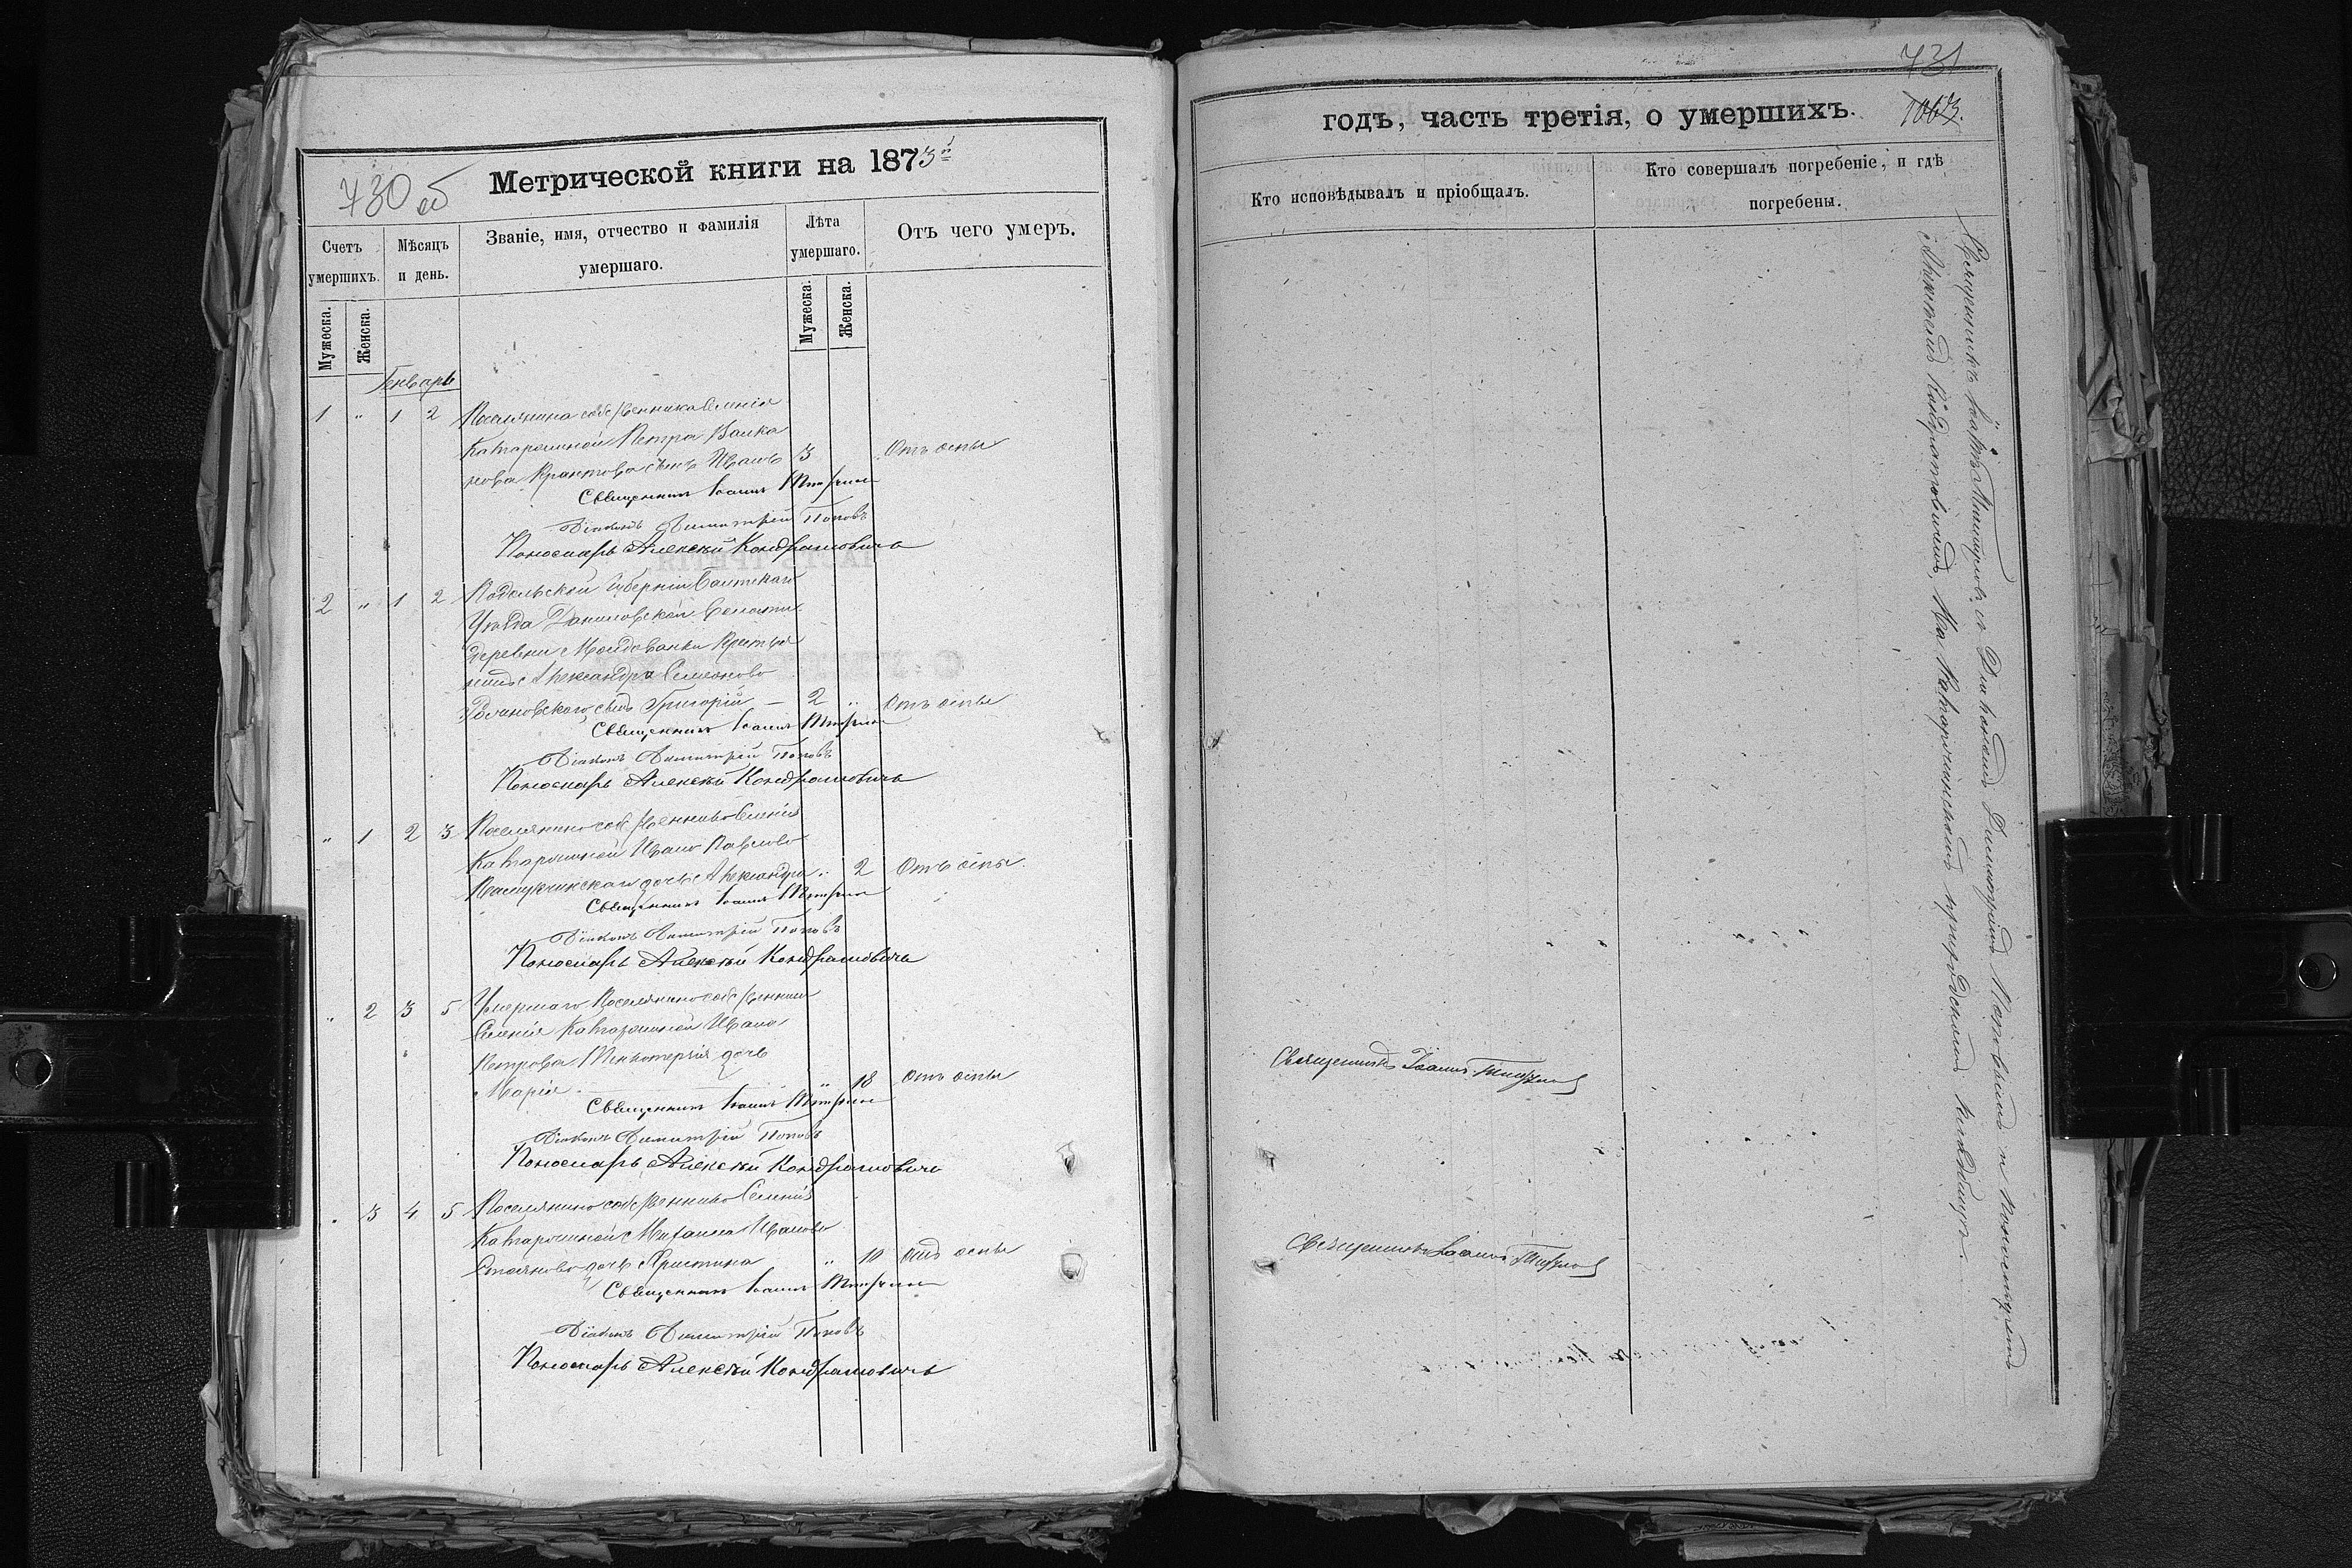 730 об
Метрической книги на 1873й
Счетъ умершихъ.
Мѣсяцъ и день.
Званіе, имя, отчество и фамилія умершаго.
Лѣта умершаго.
Отъ чего умеръ.
Мужеска.
Женска.
Мужеска.
Женска.
Генварь
1 " 1 2 Поселянина собственника Селенія
Катаржиной Петра
сынъ Иванъ 3 Отъ оспы
Священникъ Іоаннъ
Діаконъ Димитрій Поповъ
Пономарь Алексѣй Кондратовичъ
2 " 1 2 Подольской Губерніи Балтскаго
Уѣзда Даниловской Волости
деревни Молдованки Крестья
нина Александра Семенова
сынъ Григорій — 2 " Отъ оспы
Священникъ Іоаннъ
Діаконъ Димитрій Поповъ
Пономарь Алексѣй Кондратовичъ
" 1 2 3 Поселянина собственника Селенія
Катаржиной Ивана Павлова
дочь Александра " 2 Отъ оспы
Священникъ Іоаннъ
Діаконъ Димитрій Поповъ
Пономарь Алексѣй Кондратовичъ
" 2 3 5 Умершаго Поселянина собственника
Селенія Катаржиной Ивана
Петрова дочь
Марія " 18 Отъ оспы
Священникъ Іоаннъ
Діаконъ Димитрій Поповъ
Пономарь Алексѣй Кондратовичъ
" 3 4 5 Поселянина собственника Селенія
Катаржиной Михаила Иванова
Стоянова дочь Христина " 10 Отъ оспы
Священникъ Іоаннъ
Діаконъ Димитрій Поповъ
Пономарь Алексѣй Кондратовичъ
731
1063.
годъ, часть третія, о умершихъ.
Кто исповѣдывалъ и пріобщалъ.
Кто совершалъ погребеніе, и гдѣ погребены.
Священникъ Іоаннъ
Священникъ Іоаннъ
Священникъ Іоаннъ съ Діакономъ Димитріемъ Поповымъ и Пономаремъ
Алексѣемъ Кондратовичемъ, На Катаржинскомъ приходскомъ кладбищѣ